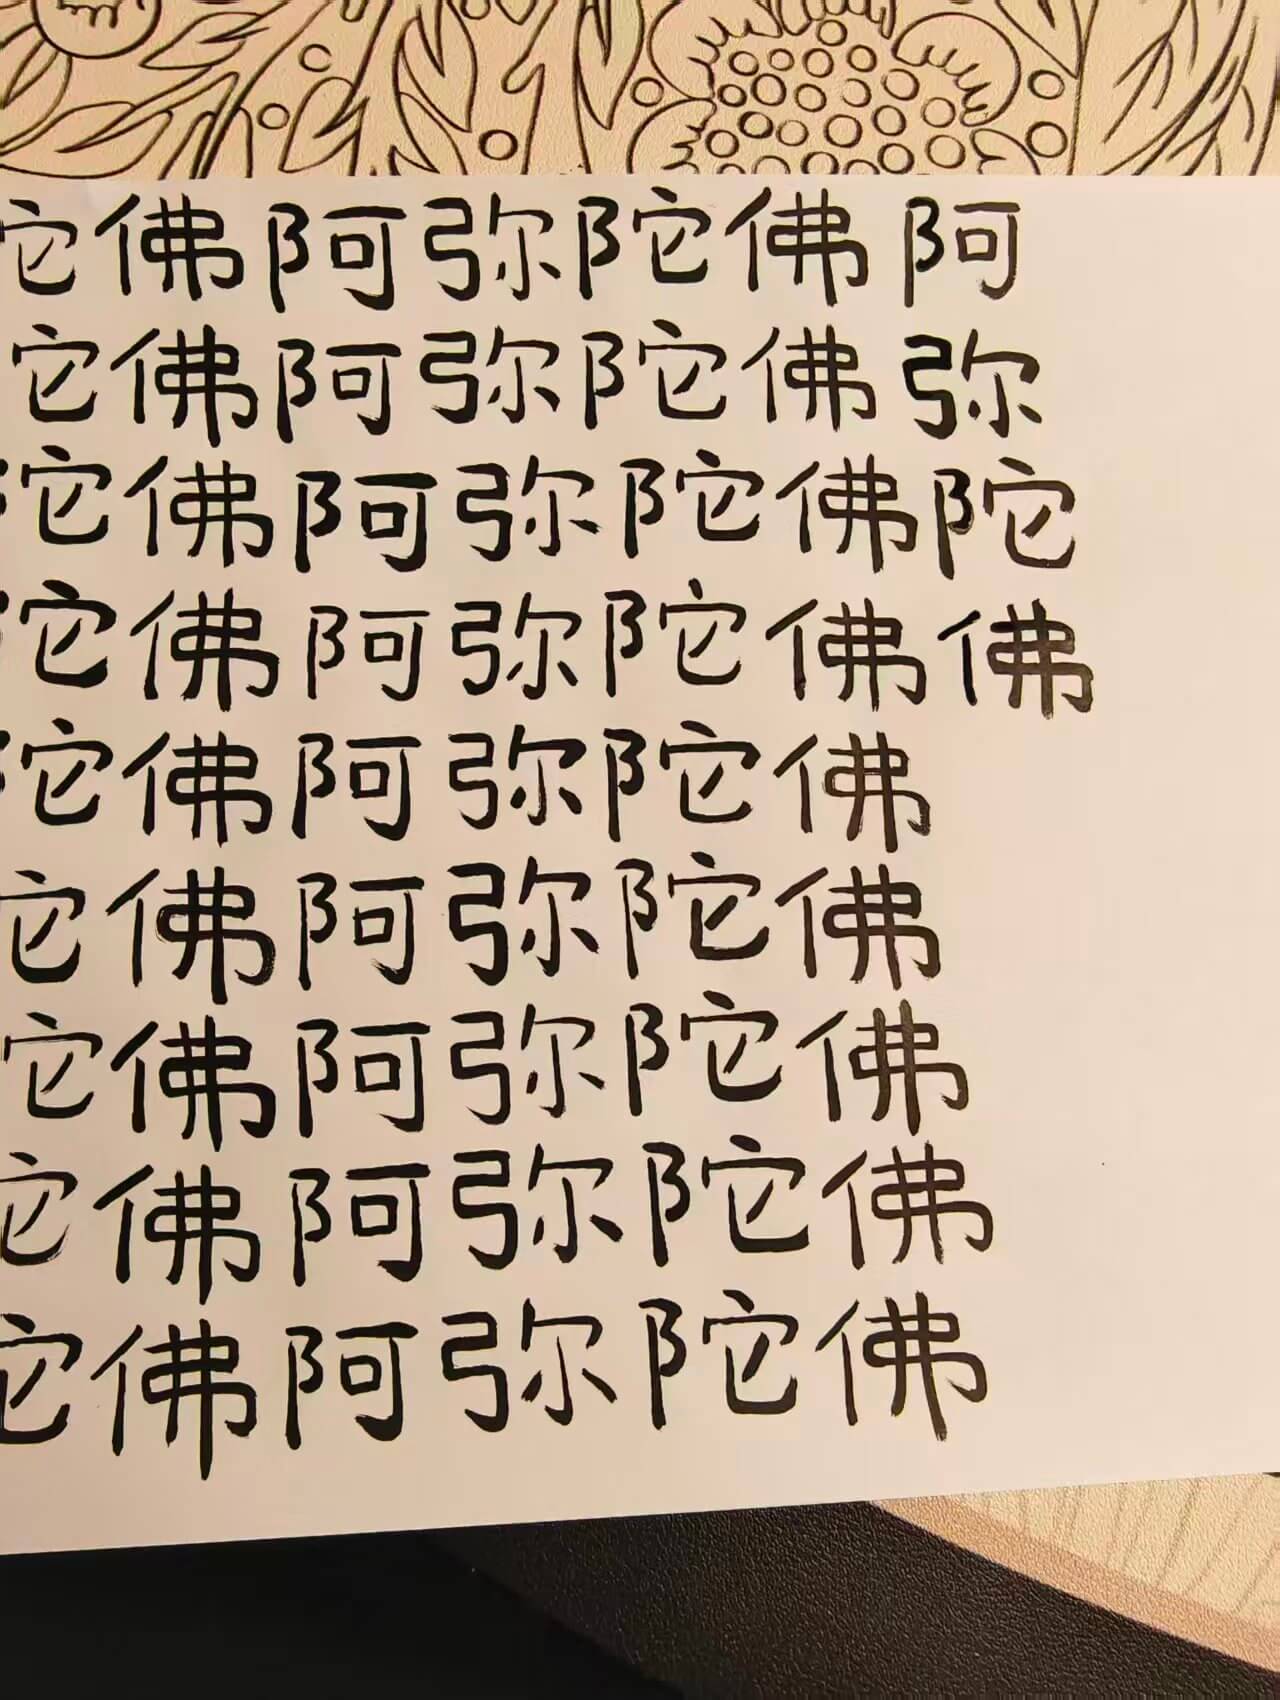 陀佛阿弥陀佛阿
陀佛阿弥陀佛弥
陀佛阿弥陀佛陀
陀佛阿弥陀佛佛
陀佛阿弥陀佛
陀佛阿弥陀佛
陀佛阿弥陀佛
陀佛阿弥陀佛
陀佛阿弥陀佛